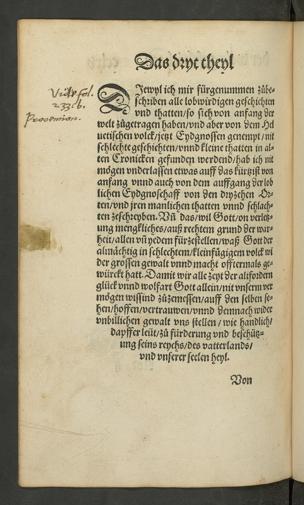 Vide fol.
233. b.
Prooemion.
Das dryt theyl
DJewyl ich mir fürgenummen zůbe-
schriben alle lobwirdigen geschichten
vnd thatten/so sich von anfang der
welt zůgetragen haben/vnd aber von dem Hel
uetischen volck/jetz Eydgnossen genempt/nit
schlechte geschichten/vnnd kleine thatten in al-
ten Cronicken gefunden werdend/hab ich nit
mögen vnderlassen etwas auff das kürtzist von
anfang vnnd auch von dem auffgang der lob
lichen Eydgnoschaff von den dryzehen Or-
ten/vnd jren manlichen thatten vnnd schlach-
ten zeschreyben. Vñ das/wil Gott/on verletz-
ung mengkliches/auß rechtem grund der war-
heit/allen vñ yedem fürzestellen/waß Gott der
almächtig in schlechten/kleinfügigen volck wi
der grossen gewalt vnnd macht offtermals ge-
würckt hatt. Damit wir alle zeyt der alifordern
glück vnnd wolfart Gott allein/nit vnserm ver
mögen wissind zůzemessen/auff den selben se-
hen/hoffen/vertrauwen/vnnd dennach wider
vnbillichen gewalt vns stellen/wie handlich/
dapffer leüt/zů fürderung vnd beschütz-
ung seins reychs/des vatterlands/
vnd vnserer seelen heyl.
Von